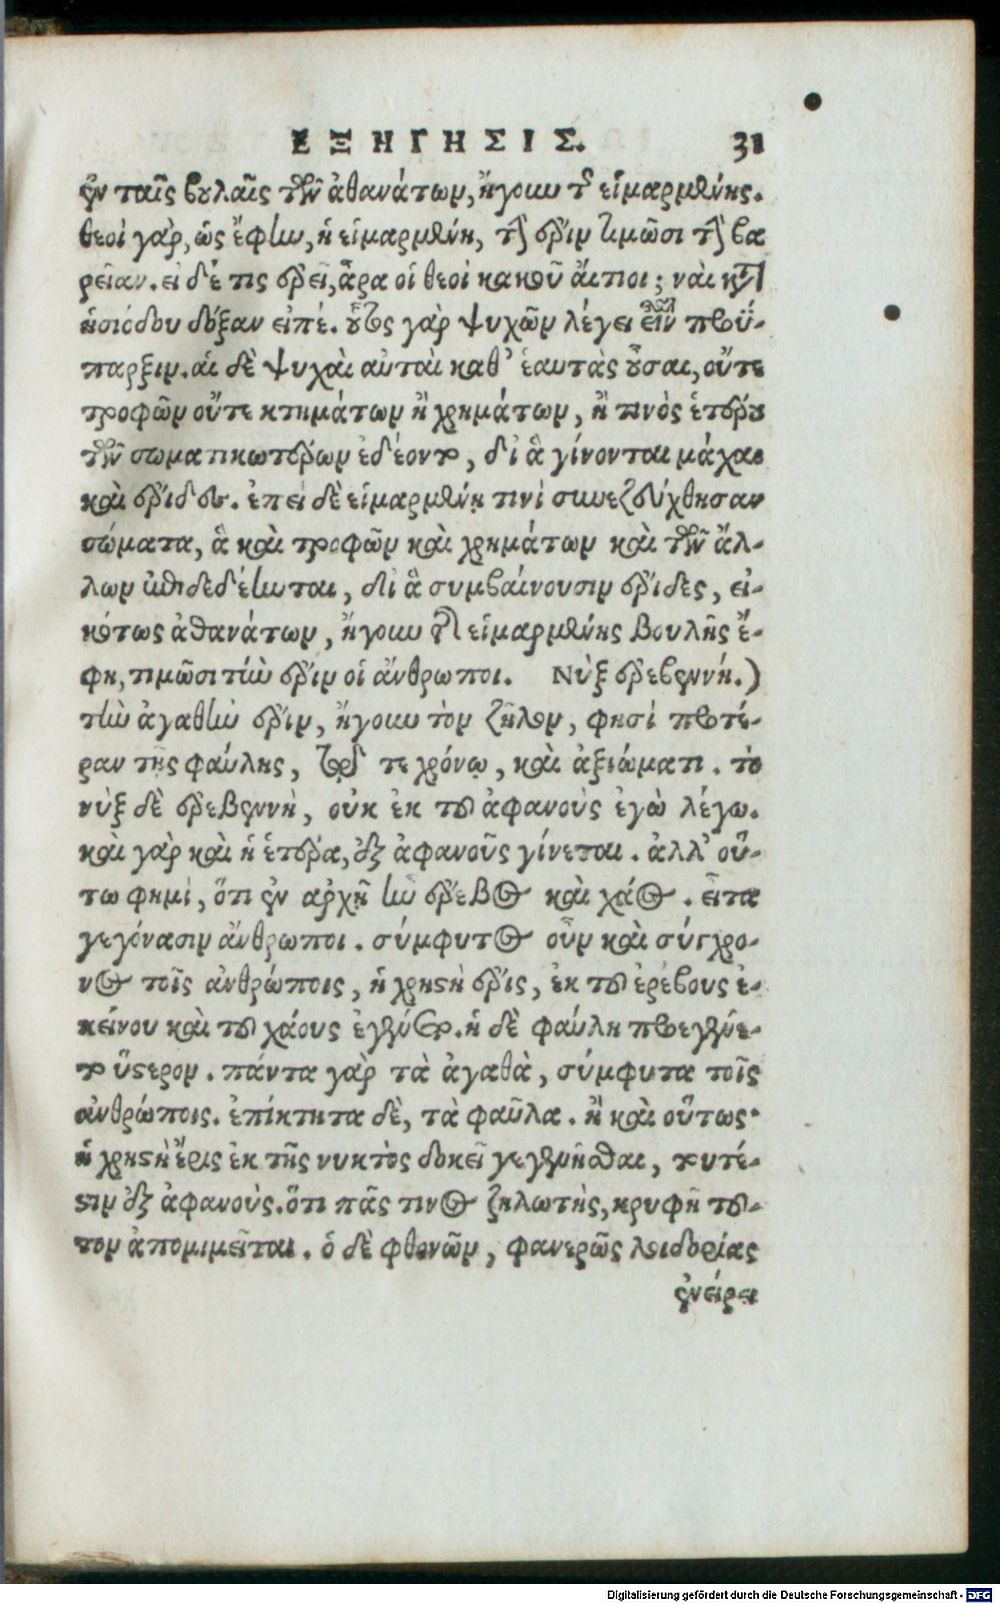 ΕΞΗΓΗΣΙΣ. 31
ἐν ταῖς βουλαῖς τῶν ἀθανάτων, ἤγουν τῆς εἱμαρμένης.
θεοὶ γὰρ, ὡς ἔφην, ἡ εἱμαρμένη, τὴν ἔριν τιμῶσι τὴν βα
ρεῖαν. εἰ δέ τις ἐρεῖ, ἆρα οἱ θεοὶ κακοῦ αἴτιοι; ναὶ κατὰ
ἡσιόδου δόξαν εἰπέ. οὗτος γὰρ ψυχῶν λέγει εἶναι προΰ-
παρξιν. αἱ δὲ ψυχαὶ αὐταὶ καθ' ἑαυτὰς οὖσαι, οὔτε
τροφῶν οὔτε κτημάτων ἢ χρημάτων, ἢ τινὸς ἑτέρου
τῶν σωματικωτέρων ἐδέοντο, δι' ἃ γίνονται μάχαι
καὶ ἔριδες. ἐπεὶ δὲ εἱμαρμένῃ τινὶ συνεζεύχθησαν
σώματα, ἃ καὶ τροφῶν καὶ χρημάτων καὶ τῶν ἄλ-
λων ἐπιδεδέηνται, δι' ἃ συμβαίνουσιν ἔριδες, εἰ-
κότως ἀθανάτων, ἤγουν τῆς εἱμαρμένης βουλῆς ἔ-
φη, τιμῶσι τὴν ἔριν οἱ ἄνθρωποι. Νὺξ ἐρεβεννή.)
τὴν ἀγαθὴν ἔριν, ἤγουν τὸν ζῆλον, φησὶ προτέ-
ραν τῆς φαύλης, ὑπάρχειν τε χρόνῳ, καὶ ἀξιώματι. τὸ
νὺξ δὲ ἐρεβεννὴ, οὐκ ἐκ τοῦ ἀφανοὺς ἐγὼ λέγω.
καὶ γὰρ καὶ ἡ ἑτέρα, ἐξ ἀφανοῦς γίνεται. ἀλλ' οὕ-
τω φημὶ, ὅτι ἐν ἀρχῇ ἦν ἔρεβος καὶ χάος. εἶτα
γεγόνασιν ἄνθρωποι. σύμφυτος οὖν καὶ σύγχρο-
νος τοῖς ἀνθρώποις, ἡ χρηστὴ ἔρις, ἐκ τοῦ ἐρέβους ἐ-
κείνου καὶ τοῦ χάους ἐγένετο. ἡ δὲ φαύλη προεγένε-
το ὕστερον. πάντα γὰρ τὰ ἀγαθὰ, σύμφυτα τοῖς
ἀνθρώποις. ἐπίκτητα δὲ, τὰ φαῦλα. ἢ καὶ οὕτως·
ἡ χρηστὴ ἔρις ἐκ τῆς νυκτὸς δοκεῖ γεγενῆσθαι, τουτέ-
στιν ἐξ ἀφανοὺς. ὅτι πᾶς τινος ζηλωτὴς, κρυφῇ τοῦ-
τον ἀπομιμεῖται. ὁ δὲ φθονῶν, φανερῶς λοιδορίας
ἐνείρει
Digitalisierung gefördert durch die Deutsche Forschungsgemeinschaft - DFG